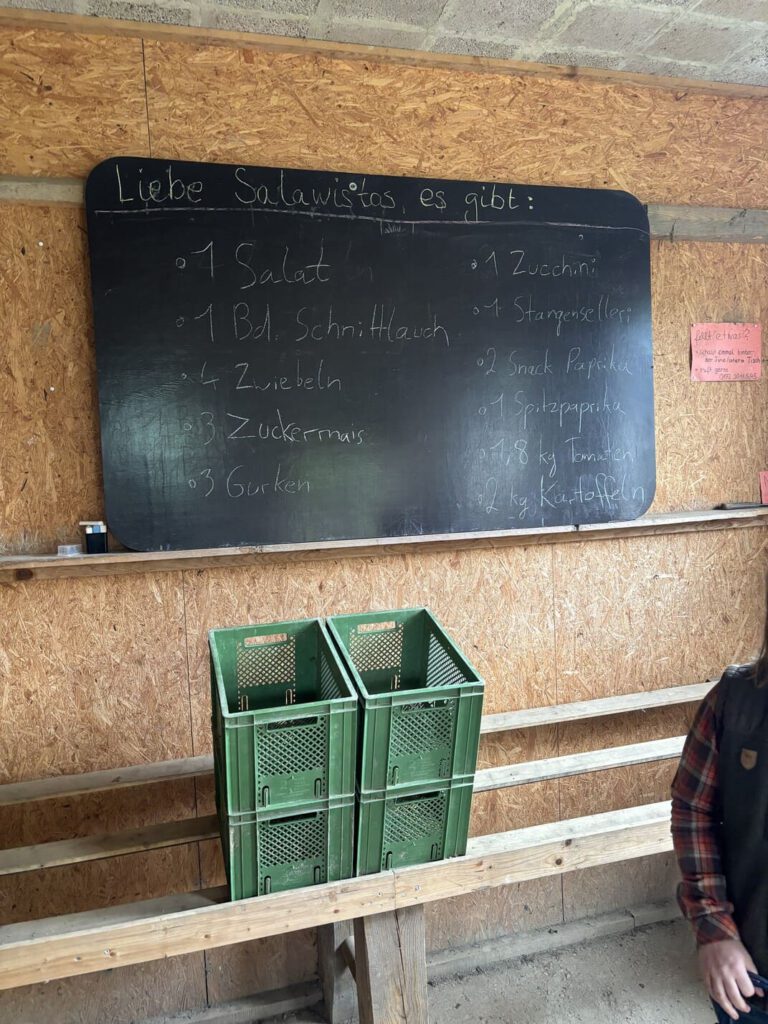 Liebe Salawistas, es gibt:
◦ 1 Salat
◦ 1 Bd. Schnittlauch
◦ 4 Zwiebeln
◦ 3 Zuckermais
◦ 3 Gurken
◦ 1 Zucchini
◦ 1 Stangenselleri
◦ 2 Snack Paprika
◦ 1 Spitzpaprika
◦ 1,8 kg Tomaten
◦ 2 kg Kartoffeln
fehlt etwas?
• schaut einmal hinter
Tisch
• ruft gerne